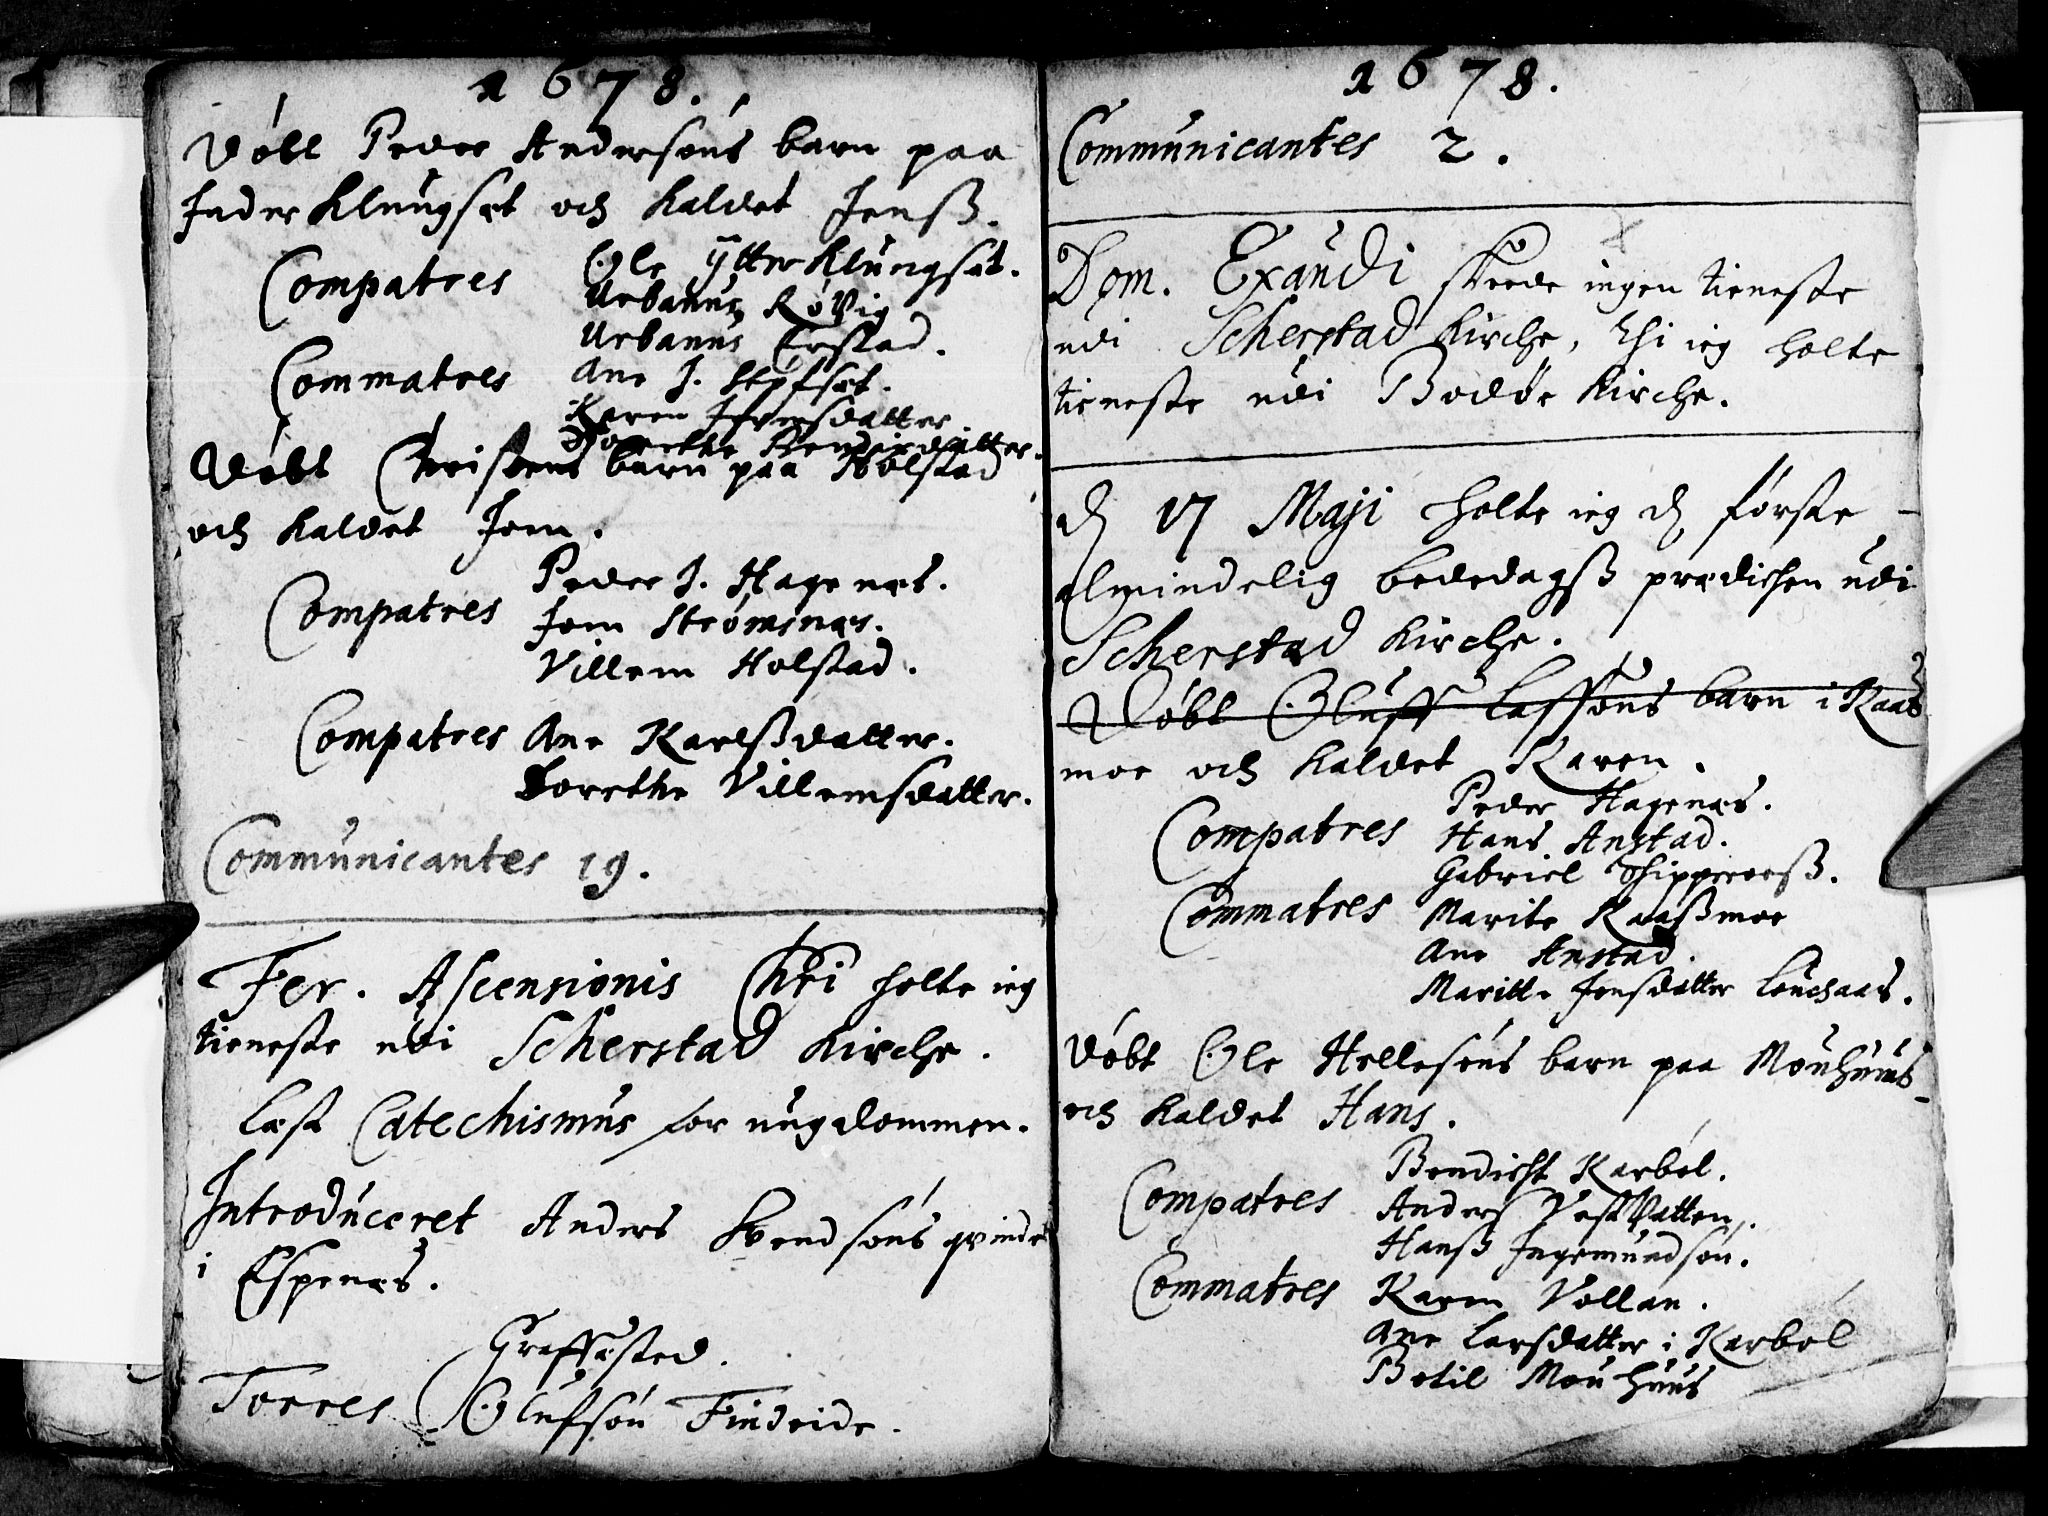 1678.
Døbt Peder Andersøns barn paa
Inder Klungset och kaldet Jenß.
Compatres Ole ytter Klungset.
Urbanus Røvig
Urbanus Erstad.
Commatres Ane J. Stpfset.
Karen Ifversdatter
Dorethe Bendixdatter.
Døbt Christens barn paa Holstad
och kaldet Jern.
Compatres Peder J. Hagenæs.
Jern Strømsnæs.
Villem Holstad.
Compatres Ane Karlßdatter.
Dorethe Villemsdatter.
Communicantes 19.
Fer. Ascensionis Chri holte ieg
tieneste udi Scherstad Kirche.
Læst Catechismus for ungdommen.
Introduceret Anders Svendsøns qvinde
i Espenæs.
Graffæsted.
Torres Olufsøn Findeide.
1678.
Communicantes 2.
Dom. Exaudi skeede ingen tieneste
udi Scherstad Kirche, thi ieg holte
tieneste udi Bodøe Kirche.
d 17 Maji holte ieg d første
almindelig bededagß prædichen udi
Scherstad Kirche.
Døbt Oluff Lassøns barn i Kaas
moe och kaldet Karen.
Compatres Peder Hagenæs.
Hans Anstad.
Gabriel Schipperoeß.
Commatres Marite Kaaßmoe
Ane Anstad.
Maritte Jensdatter Løuchaas.
Døbt Ole Hellesøns barn paa Mouhuus
och kaldet Hans.
Compatres Bendicht Karbøl.
Anders Vestvatten.
Hanß Ingemundsøn.
Commatres Karen Vollan.
Ane Larsdatter i Karbøl
Betil Mouhuus